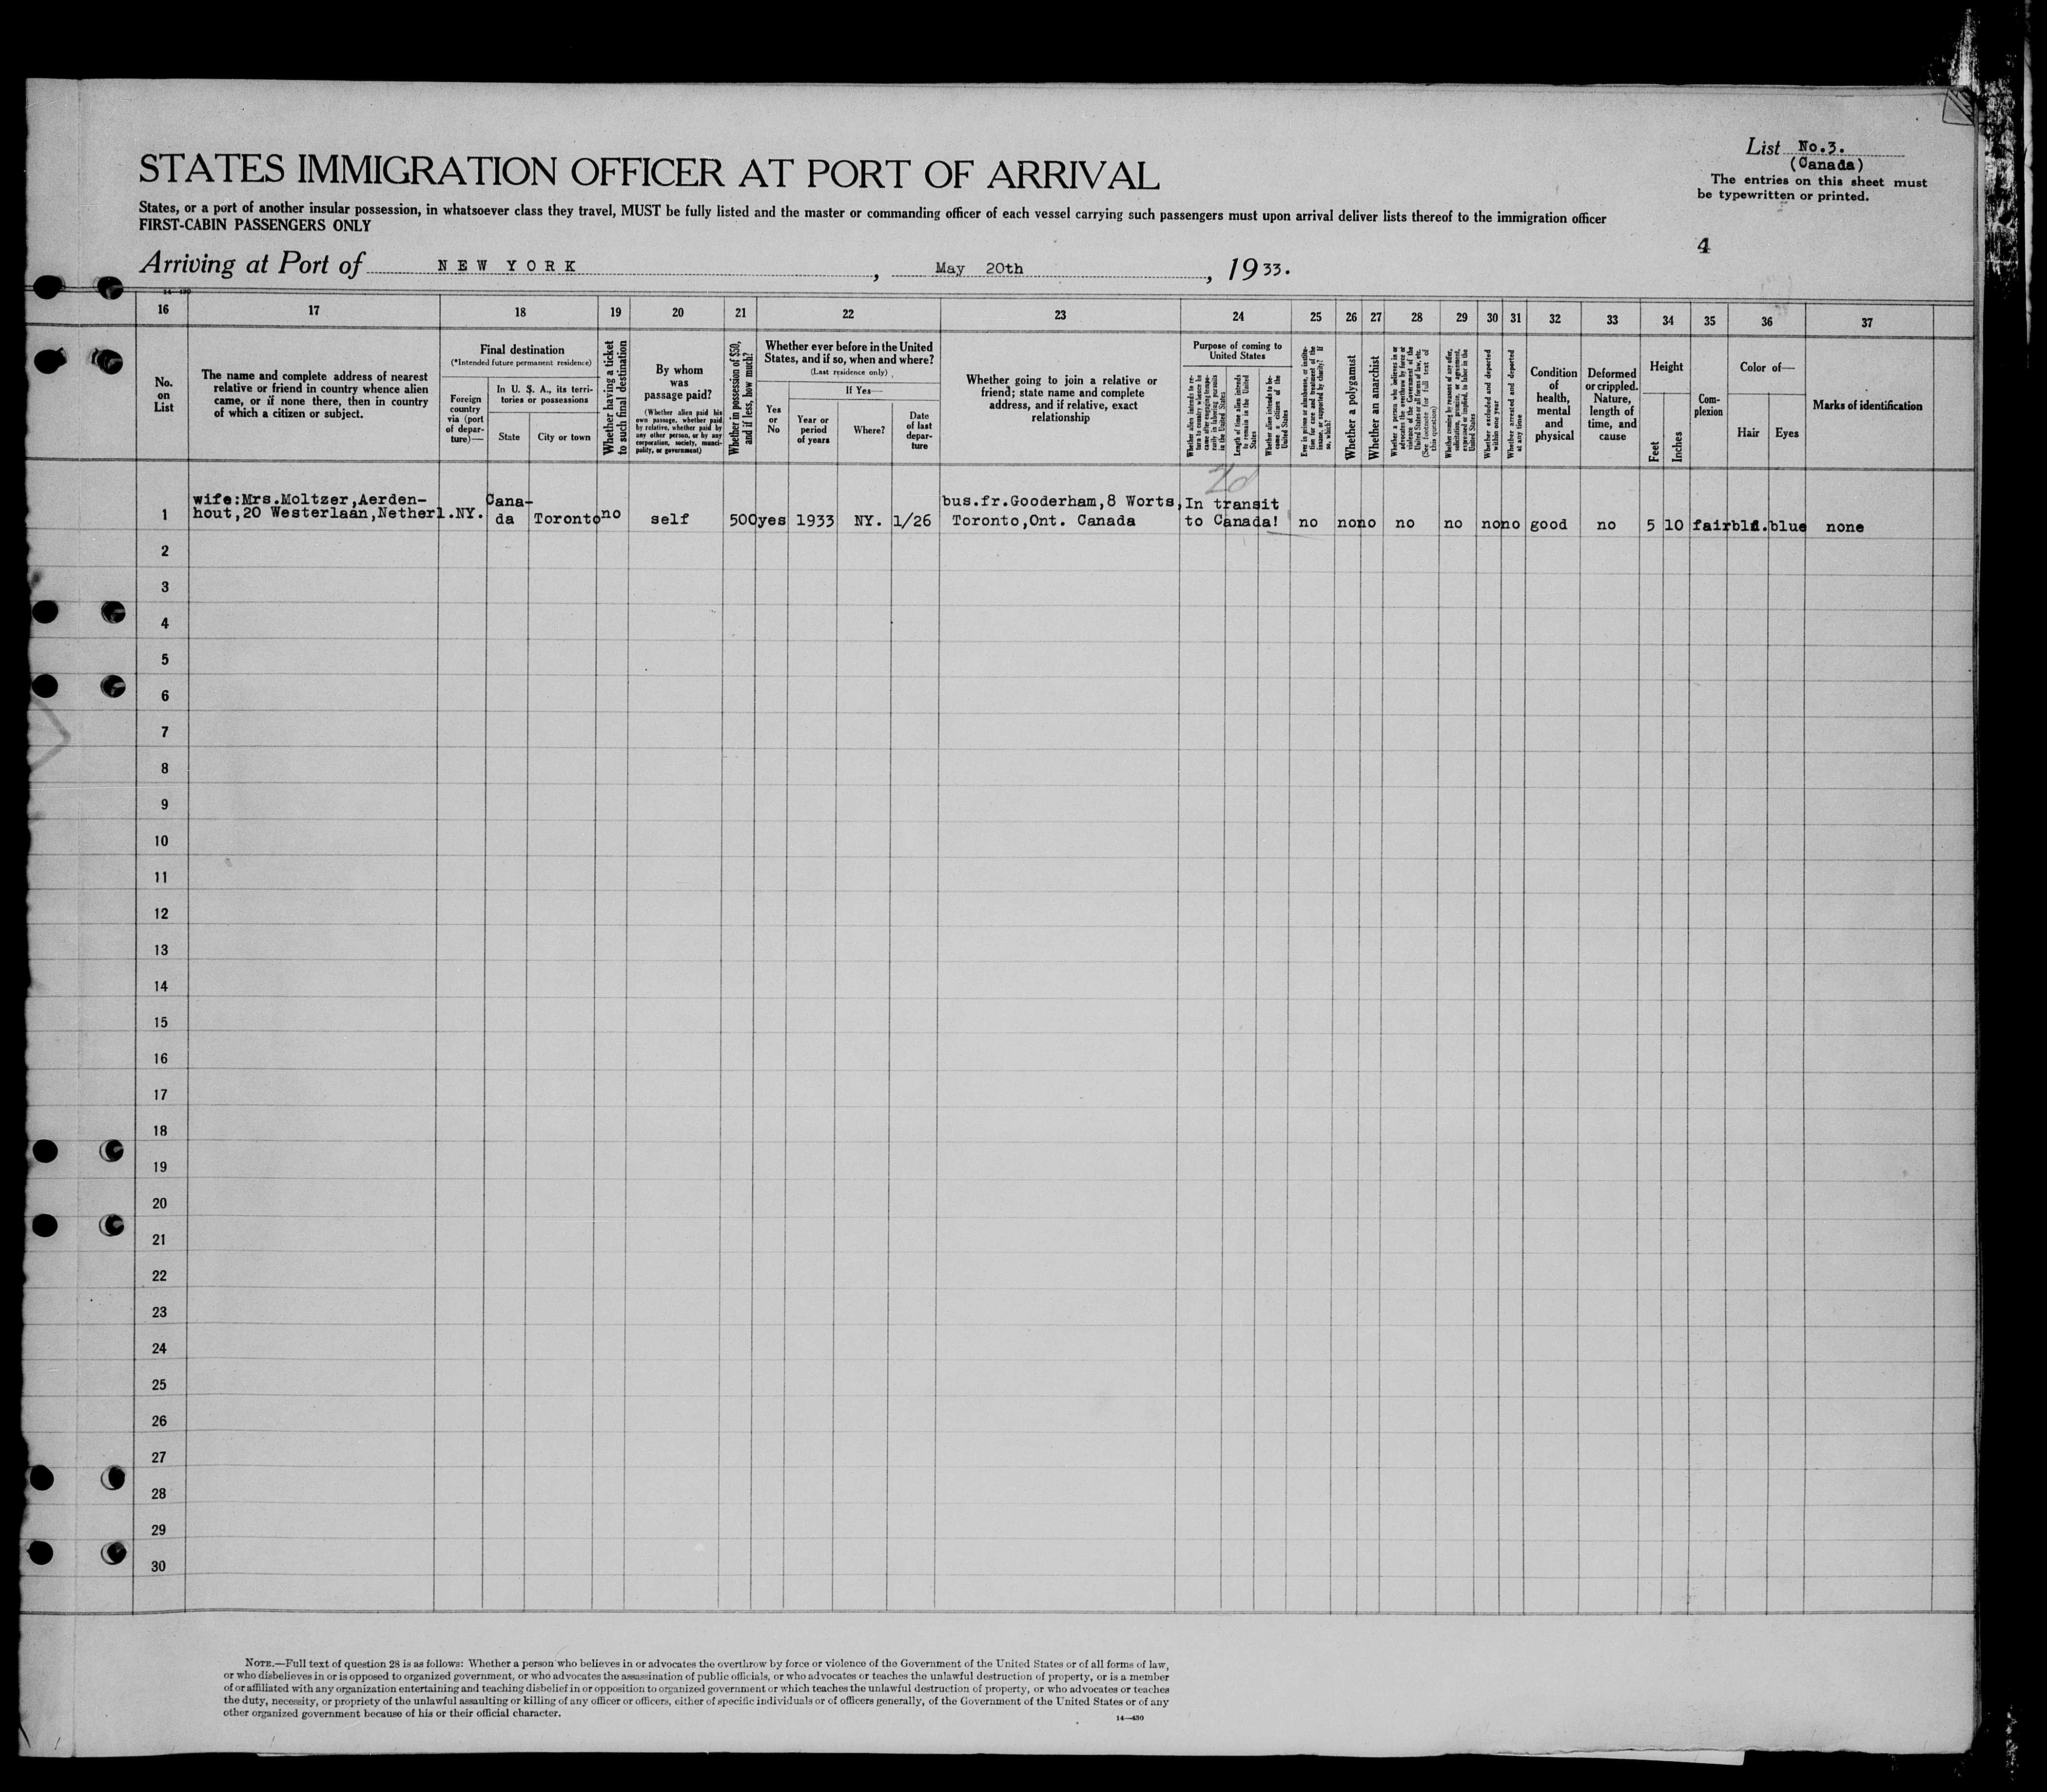 List No.3.
(Canada)
The entries on this sheet must
be typewritten or printed.
4
STATES IMMIGRATION OFFICER AT PORT OF ARRIVAL
States, or a port of another insular possession, in whatsoever class they travel, MUST be fully listed and the master or commanding officer of each vessel carrying such passengers must upon arrival deliver lists thereof to the immigration officer
FIRST-CABIN PASSENGERS ONLY
Arriving at Port of NEW YORK, May 20th, 1933.
14—430
16 17 18 19 20 21 22 23 24 25 26 27 28 29 30 31 32 33 34 35 36 37
No.
on
List
The name and complete address of nearest
relative or friend in country whence alien
came, or if none there, then in country
of which a citizen or subject.
Final destination
(*Intended future permanent residence)
Foreign
country
via (port
of depar-
ture)—
In U. S. A., its terri-
tories or possessions
State
City or town
Whether having a ticket
to such final destination
By whom
was
passage paid?
(Whether alien paid his
own passage, whether paid
by relative, whether paid by
any other person, or by any
corporation, society, munici-
pality, or government)
Whether in possession of $50,
and if less, how much?
Whether ever before in the United
States, and if so, when and where?
(Last residence only)
Yes
or
No
If Yes—
Year or
period
of years
Where?
Date
of last
depar-
ture
Whether going to join a relative or
friend; state name and complete
address, and if relative, exact
relationship
Purpose of coming to
United States
Whether alien intends to re-
turn to country whence he
came after engaging tempo-
rarily in laboring pursuits
in the United States
Length of time alien intends
to remain in the United
States
Whether alien intends to be-
come a citizen of the
United States
Ever in prison or almshouse, or institu-
tion for care and treatment of the
insane, or supported by charity? If
so, which?
Whether a polygamist
Whether an anarchist
Whether a person who believes in or
advocates the overthrow by force or
violence of the Government of the
United States or all forms of law, etc.
(See footnote for full text of
this question)
Whether coming by reason of any offer,
solicitation, promise, or agreement,
expressed or implied, to labor in the
United States
Whether excluded and deported
within one year
Whether arrested and deported
at any time
Condition
of
health,
mental
and
physical
Deformed
or crippled.
Nature,
length of
time, and
cause
Height
Feet
Inches
Com-
plexion
Color of—
Hair
Eyes
Marks of identification
20
wife:Mrs.Moltzer,Aerden- Cana- bus.fr.Gooderham,8 Worts, In transit
1 hout,20 Westerlaan,Netherl. NY. da Toronto no self 500 yes 1933 NY. 1/26 Toronto,Ont. Canada to Canada! no no no no no no no good no 5 10 fair bld. blue none
2
3
4
5
6
7
8
9
10
11
12
13
14
15
16
17
18
19
20
21
22
23
24
25
26
27
28
29
30
NOTE.—Full text of question 28 is as follows: Whether a person who believes in or advocates the overthrow by force or violence of the Government of the United States or of all forms of law,
or who disbelieves in or is opposed to organized government, or who advocates the assassination of public officials, or who advocates or teaches the unlawful destruction of property, or is a member
of or affiliated with any organization entertaining and teaching disbelief in or opposition to organized government or which teaches the unlawful destruction of property, or who advocates or teaches
the duty, necessity, or propriety of the unlawful assaulting or killing of any officer or officers, either of specific individuals or of officers generally, of the Government of the United States or of any
other organized government because of his or their official character.
14—430